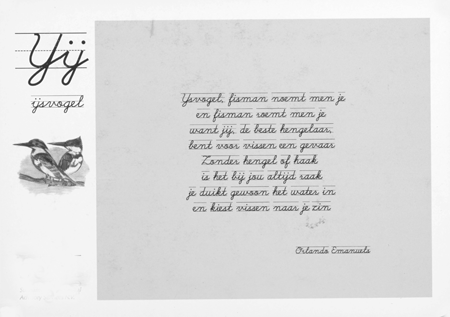 IJij
ijsvogel
IJsvogel, fisman noemt men je
en fisman roemt men je
want jij, de beste hengelaar,
bent voor vissen een gevaar
Zonder hengel of haak
is het bij jou altijd raak
je duikt gewoon het water in
en kiest vissen naar je zin
Orlando Emanuels